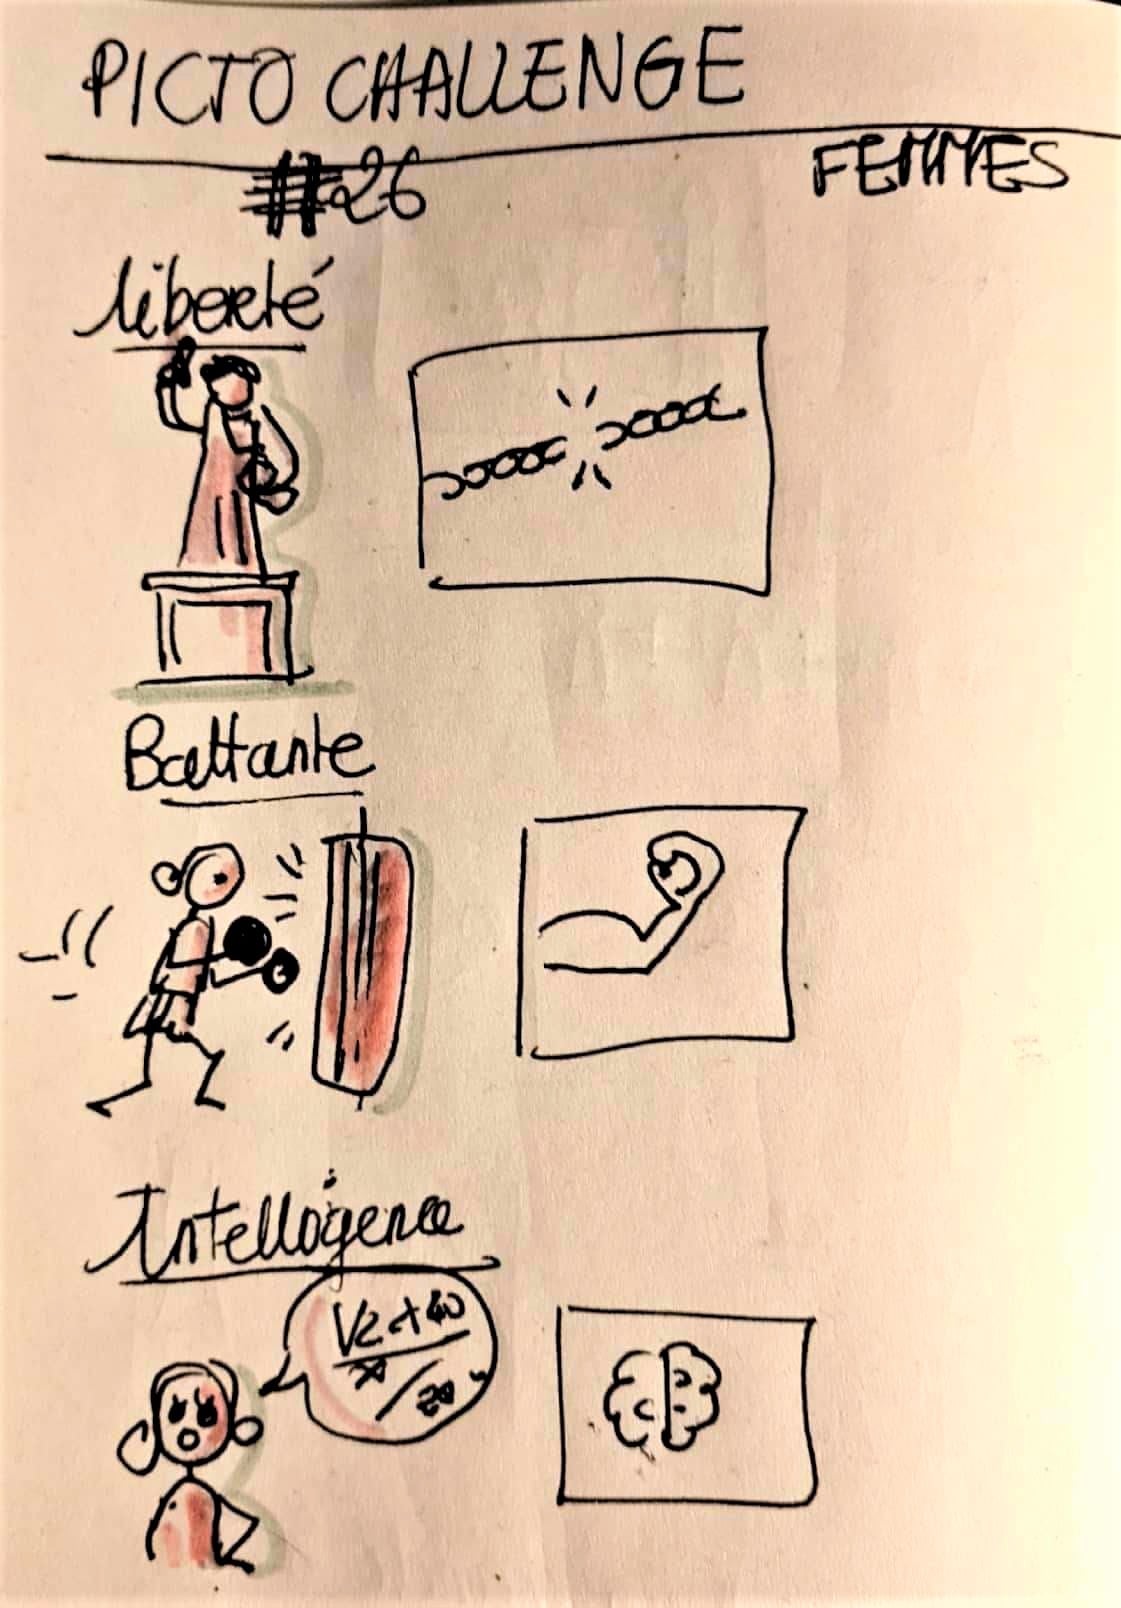 PICTO CHALLENGE
#26
FEMMES
Liberté
Battante
Intelligence